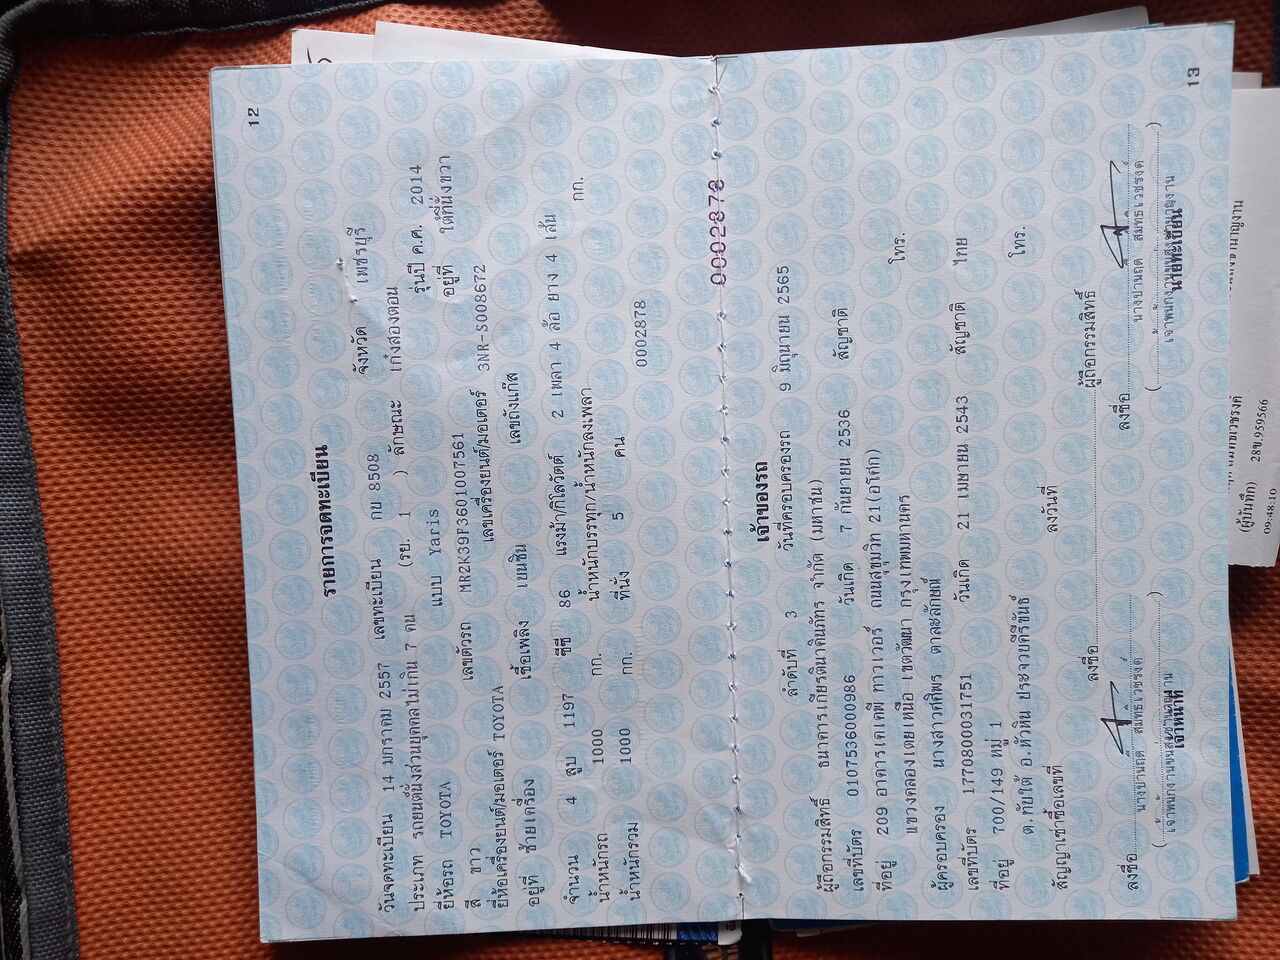 12
รายการจดทะเบียน
วันจดทะเบียน 14 มกราคม 2557 เลขทะเบียน กบ 8508 จังหวัด เพชรบุรี
ประเภท รถยนต์นั่งส่วนบุคคลไม่เกิน 7 คน (รย. 1 ) ลักษณะ เก๋งสองตอน
ยี่ห้อรถ TOYOTA แบบ Yaris รุ่นปี ค.ศ. 2014
สี ขาว เลขตัวรถ MR2K39F3601007561 อยู่ที่ ใต้ที่นั่งขวา
ยี่ห้อเครื่องยนต์/มอเตอร์ TOYOTA เลขเครื่องยนต์/มอเตอร์ 3NR-S008672
อยู่ที่ ซ้ายเครื่อง เชื้อเพลิง เบนซิน เลขถังแก๊ส
จำนวน 4 สูบ 1197 ซีซี 86 แรงม้า/กิโลวัตต์ 2 เพลา 4 ล้อ ยาง 4 เส้น
น้ำหนักรถ 1000 กก. น้ำหนักบรรทุก/น้ำหนักลงเพลา กก.
น้ำหนักรวม 1000 กก. ที่นั่ง 5 คน 0002878
0002878
เจ้าของรถ
ลำดับที่ 3 วันที่ครอบครองรถ 9 มิถุนายน 2565
ผู้ถือกรรมสิทธิ์ ธนาคารเกียรตินาคินภัทร จำกัด (มหาชน)
เลขที่บัตร 0107536000986 วันเกิด 7 กันยายน 2536 สัญชาติ
ที่อยู่ 209 อาคารเคเคพี ทาวเวอร์ ถนนสุขุมวิท 21(อโศก)
แขวงคลองเตยเหนือ เขตวัฒนา กรุงเทพมหานคร โทร.
ผู้ครอบครอง นางสาวศศิพร ตาละลักษณ์
เลขที่บัตร 1770800031751 วันเกิด 21 เมษายน 2543 สัญชาติ ไทย
ที่อยู่ 700/149 หมู่ 1
ต.ทับใต้ อ.หัวหิน ประจวบคีรีขันธ์ โทร.
สัญญาเช่าซื้อเลขที่ ลงวันที่
ลงชื่อ ผู้ถือกรรมสิทธิ์
ลงชื่อ นางปานฤดี สมุทธเวชรงค์ ลงชื่อ นางปานฤดี สมุทธเวชรงค์
(เจ้าพนักงานขนส่งชำนาญงาน) (เจ้าพนักงานขนส่งชำนาญงาน)
เจ้าหน้าที่ นายทะเบียน
13
(ผู้บันทึก)
09:48:10 28ข.959566